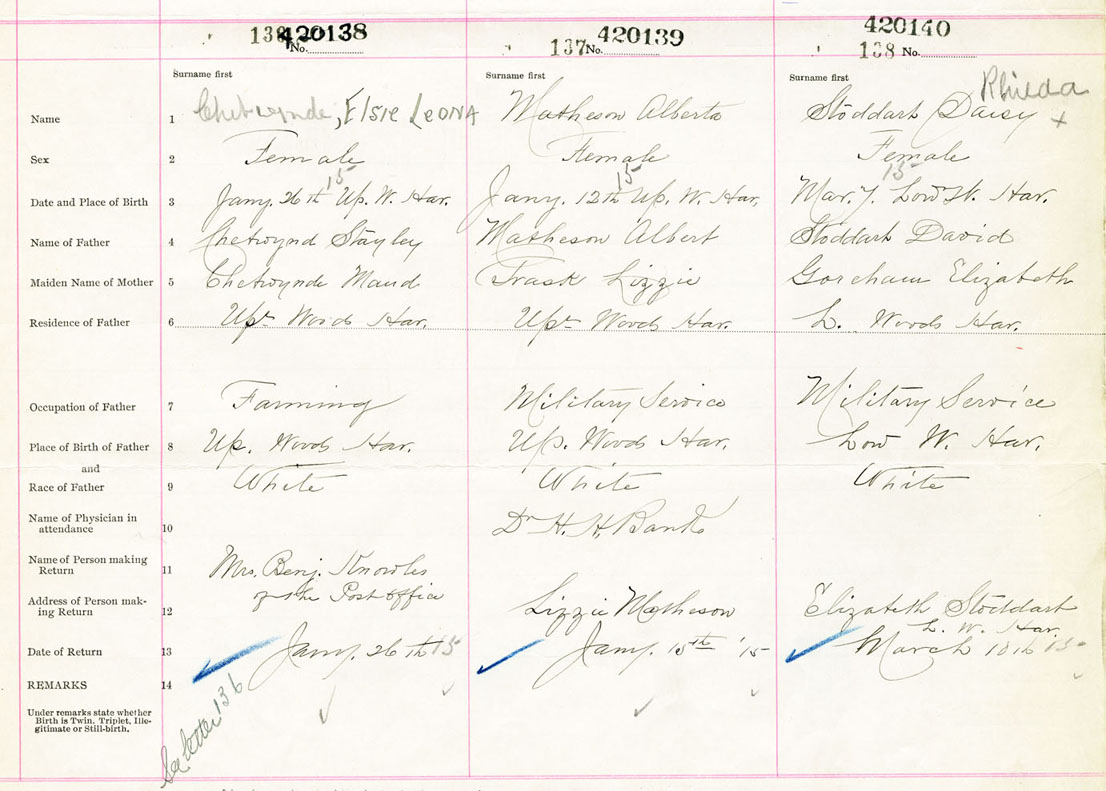 420138
No.
137 No. 420139
138 No. 420140
Surname first
Surname first
Surname first
Rhilda
Name 1 Chetwynde, Elsie Leona Matheson Alberta Stoddart Daisy x
Sex 2 Female Female Female
15 15 15
Date and Place of Birth 3 Jany. 26th Up. W. Har. Jany. 12th Up. W. Har. Mar. 7. Low W. Har.
Name of Father 4 Chetwynd Stayley Matheson Albert Stoddart David
Maiden Name of Mother 5 Chetwynde Maud Trask Lizzie Goreham Elizabeth
Residence of Father 6 Upr Woods Har. Upr Woods Har. L. Woods Har.
Occupation of Father 7 Farming Military Service Military Service
Place of Birth of Father 8 Up. Woods Har. Up. Woods Har. Low W. Har.
and
Race of Father 9 White White White
Name of Physician in
attendance 10 Dr H. H. Banks
Name of Person making
Return 11 Mrs. Benj. Knowles
of the Post office
Address of Person mak-
ing Return 12 Lizzie Matheson Elizabeth Stoddart
L. W. Har.
Date of Return 13 Jany. 26th 15 Jany. 15th '15 March 10th 15
REMARKS 14
See letter 136
Under remarks state whether
Birth is Twin, Triplet, Ille-
gitimate or Still-birth.